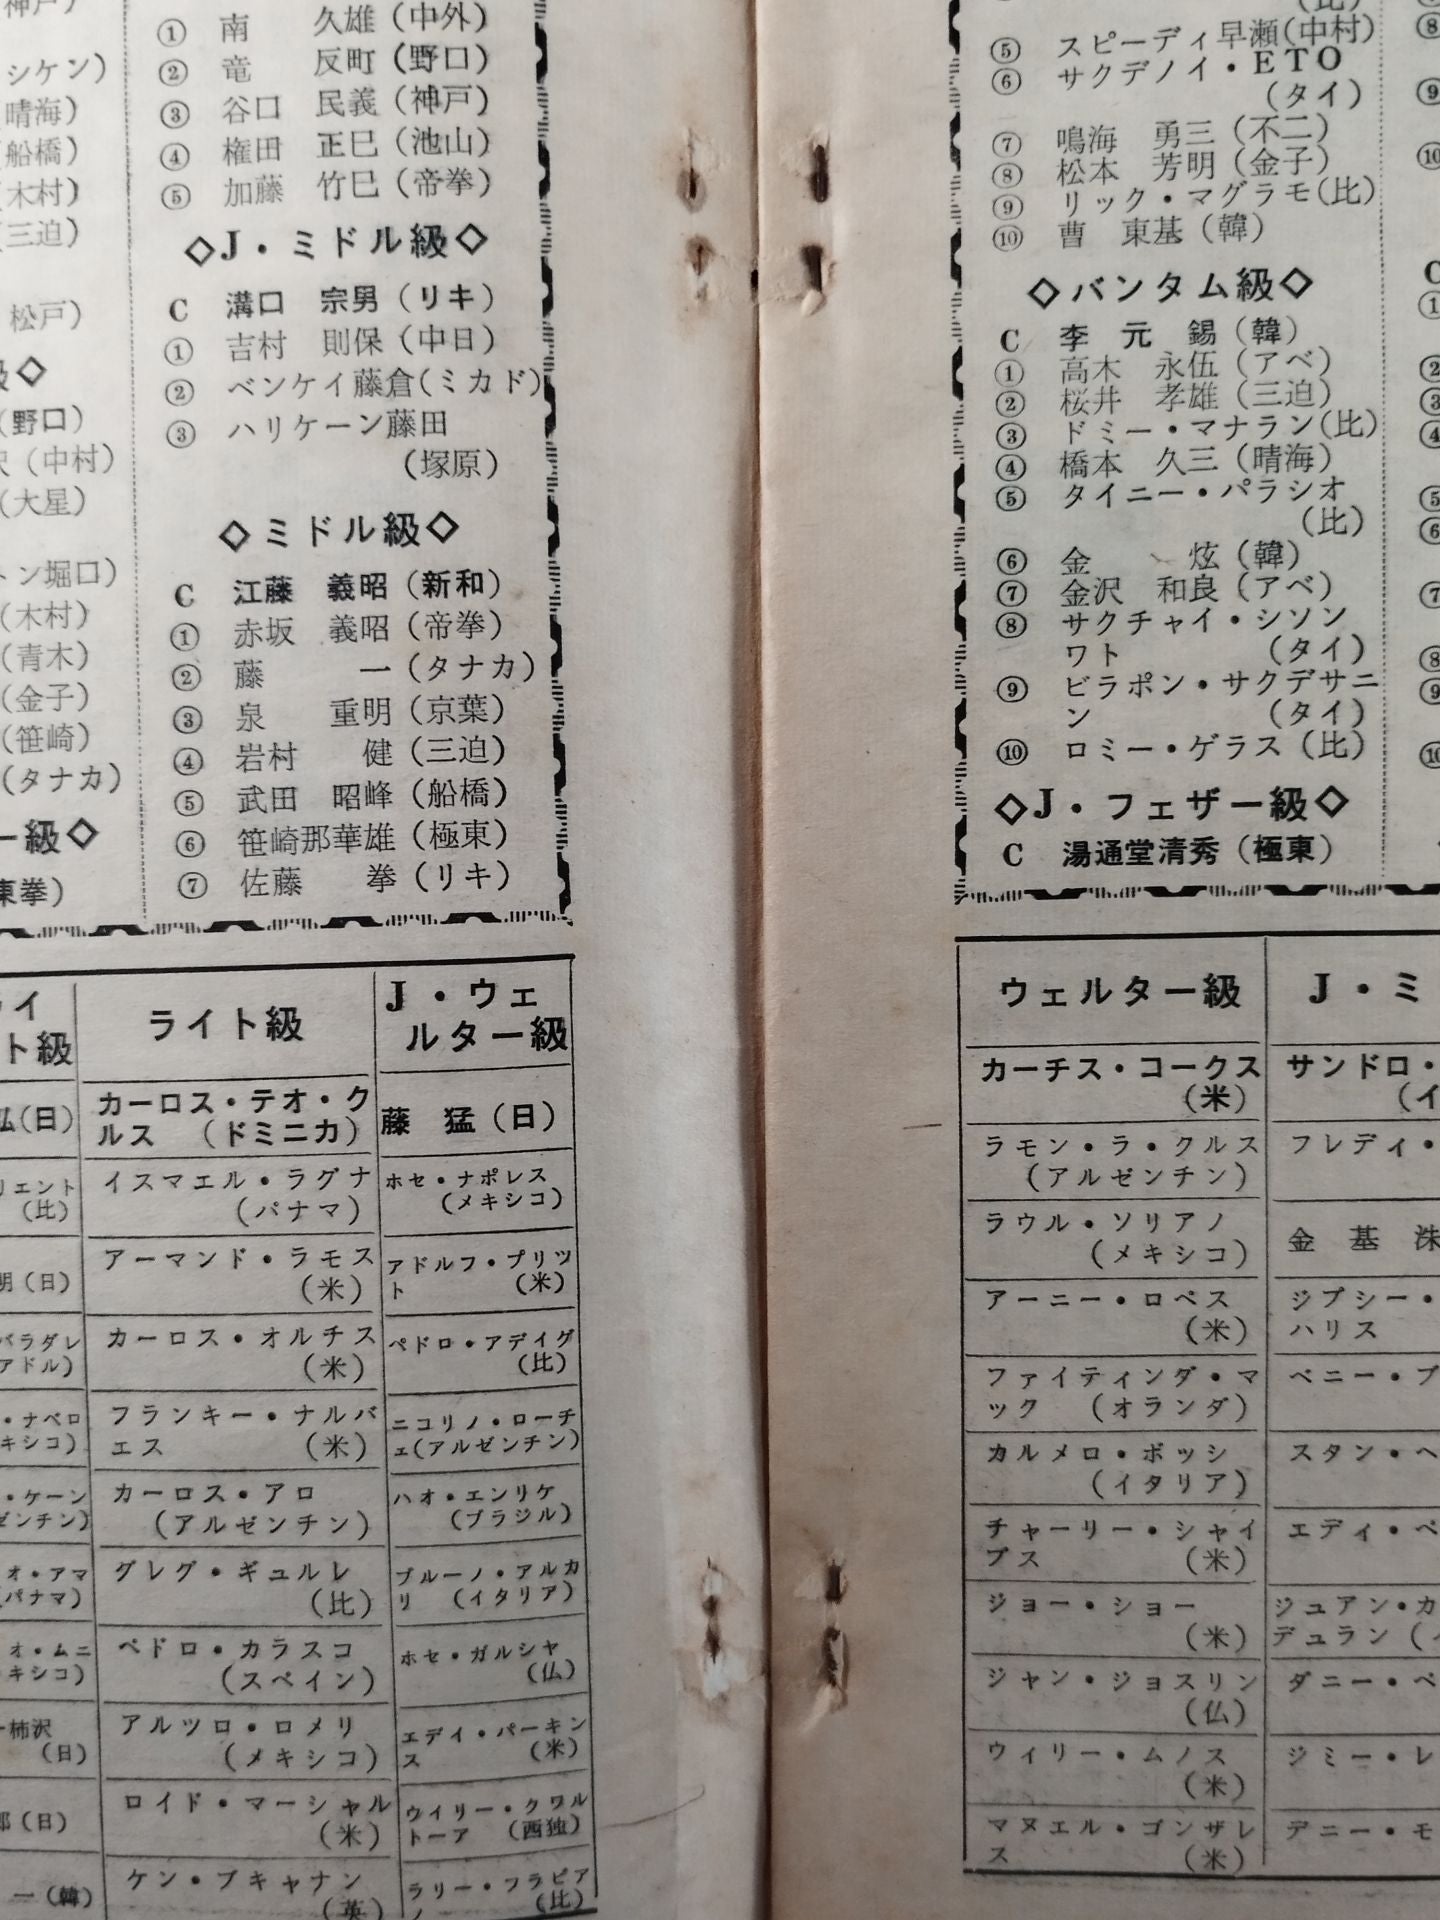 神戸)
シケン)
晴海)
船橋)
木村)
三迫)
松戸)
級◇
(野口)
沢(中村)
(大星)
トン堀口)
(木村)
(青木)
(金子)
(笹崎)
(タナカ)
ー級◇
東拳)
① 南 久雄(中外)
② 竜 反町(野口)
③ 谷口 民義(神戸)
④ 権田 正巳(池山)
⑤ 加藤 竹巳(帝拳)
◇J・ミドル級◇
C 溝口 宗男(リキ)
① 吉村 則保(中日)
② ベンケイ藤倉(ミカド)
③ ハリケーン藤田
(塚原)
◇ミドル級◇
C 江藤 義昭(新和)
① 赤坂 義昭(帝拳)
② 藤 一(タナカ)
③ 泉 重明(京葉)
④ 岩村 健(三迫)
⑤ 武田 昭峰(船橋)
⑥ 笹崎那華雄(極東)
⑦ 佐藤 拳(リキ)
(比)
⑤ スピーディ早瀬(中村)
⑥ サクデノイ・ETO
(タイ)
⑦ 鳴海 勇三(不二)
⑧ 松本 芳明(金子)
⑨ リック・マグラモ(比)
⑩ 曹 東基(韓)
◇バンタム級◇
C 李 元 錫(韓)
① 高木 永伍(アベ)
② 桜井 孝雄(三迫)
③ ドミー・マナラン(比)
④ 橋本 久三(晴海)
⑤ タイニー・パラシオ
(比)
⑥ 金 炫(韓)
⑦ 金沢 和良(アベ)
⑧ サクチャイ・シソン
ワト (タイ)
⑨ ビラポン・サクデサニ
ン (タイ)
⑩ ロミー・ゲラス(比)
◇J・フェザー級◇
C 湯通堂清秀(極東)
⑧
⑨
⑩
C
①
②
③
④
⑤
⑥
⑦
⑧
⑨
⑩
ライ
ト級
弘(日)
リエント
(比)
明(日)
バラダレ
アドル)
・ナベロ
キシコ)
・ケーン
ゼンチン)
オ・アマ
(パナマ)
オ・ムニ
キシコ)
柿沢
(日)
郎(日)
一(韓)
ライト級
カーロス・テオ・ク
ルス (ドミニカ)
イスマエル・ラグナ
(パナマ)
アーマンド・ラモス
(米)
カーロス・オルチス
(米)
フランキー・ナルバ
エス (米)
カーロス・アロ
(アルゼンチン)
グレグ・ギュルレ
(比)
ペドロ・カラスコ
(スペイン)
アルツロ・ロメリ
(メキシコ)
ロイド・マーシャル
(米)
ケン・ブキャナン
(英)
J・ウェ
ルター級
藤 猛(日)
ホセ・ナポレス
(メキシコ)
アドルフ・プリツ
ト (米)
ペドロ・アデイグ
(比)
ニコリノ・ローチ
ェ(アルゼンチン)
ハオ・エンリケ
(ブラジル)
ブルーノ・アルカ
リ (イタリア)
ホセ・ガルシヤ
(仏)
エデイ・パーキン
ス (米)
ウイリー・クワル
トーア (西独)
ラリー・フラビア
ノ (比)
ウェルター級
カーチス・コークス
(米)
ラモン・ラ・クルス
(アルゼンチン)
ラウル・ソリアノ
(メキシコ)
アーニー・ロペス
(米)
ファイティンダ・マ
ック (オランダ)
カルメロ・ボッシ
(イタリア)
チャーリー・シャイ
プス (米)
ジョー・ショー
(米)
ジャン・ジョスリン
(仏)
ウィリー・ムノス
(米)
マヌエル・ゴンザレ
ス (米)
J・ミ
サンドロ・
(イ
フレディ・
金 基 洙
ジプシー・
ハリス
ベニー・ブ
スタン・ヘ
エディ・ペ
ジュアン・カ
デュラン (イ
ダニー・ペ
ジミー・レ
デニー・モ